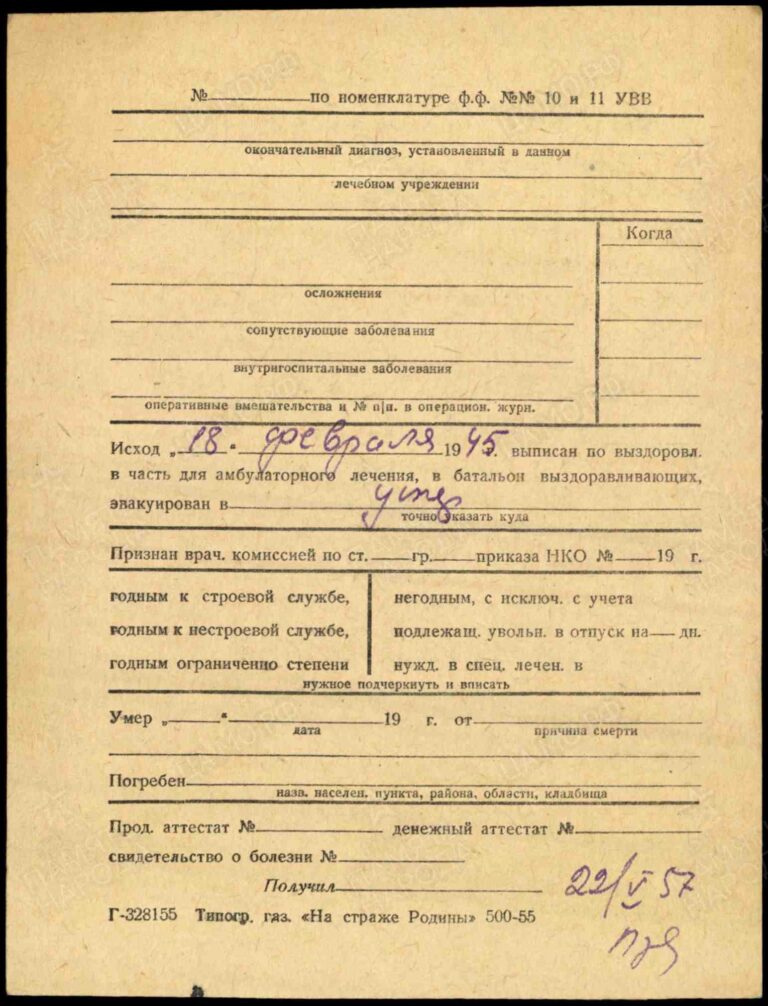 № по номенклатуре ф.ф. №№ 10 и 11 УВВ
окончательный диагноз, установленный в данном
лечебном учреждении
Когда
осложнения
сопутствующие заболевания
внутригоспитальные заболевания
оперативные вмешательства и № п|п. в операцион. журн.
Исход „18" февраля 1945г. выписан по выздоровл.
в часть для амбулаторного лечения, в батальон выздоравливающих,
эвакуирован в
точно указать куда
Признан врач. комиссией по ст. гр. приказа НКО № 19 г.
годным к строевой службе, негодным, с исключ. с учета
годным к нестроевой службе, подлежащ. увольн. в отпуск на дн.
годным ограниченно степени нужд. в спец. лечен. в
нужное подчеркнуть и вписать
Умер „ " 19 г. от
дата причина смерти
Погребен
назв. населен. пункта, района, области, кладбища
Прод. аттестат № денежный аттестат №
свидетельство о болезни №
Получил 22/V 57
Г-328155 Типогр. газ. «На страже Родины» 500-55